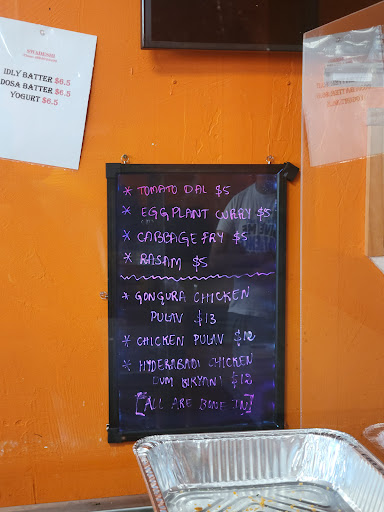 IDLY BATTER $6.5
DOSA BATTER $6.5
YOGURT $6.5
* TOMATO DAL $5
* EGGPLANT CURRY $5
* CABBAGE FRY $5
* RASAM $5
* GONGURA CHICKEN
PULAV $13
* CHICKEN PULAV $12
* HYDERABADI CHICKEN
DUM BIRYANI $12
[ALL ARE BONE IN]